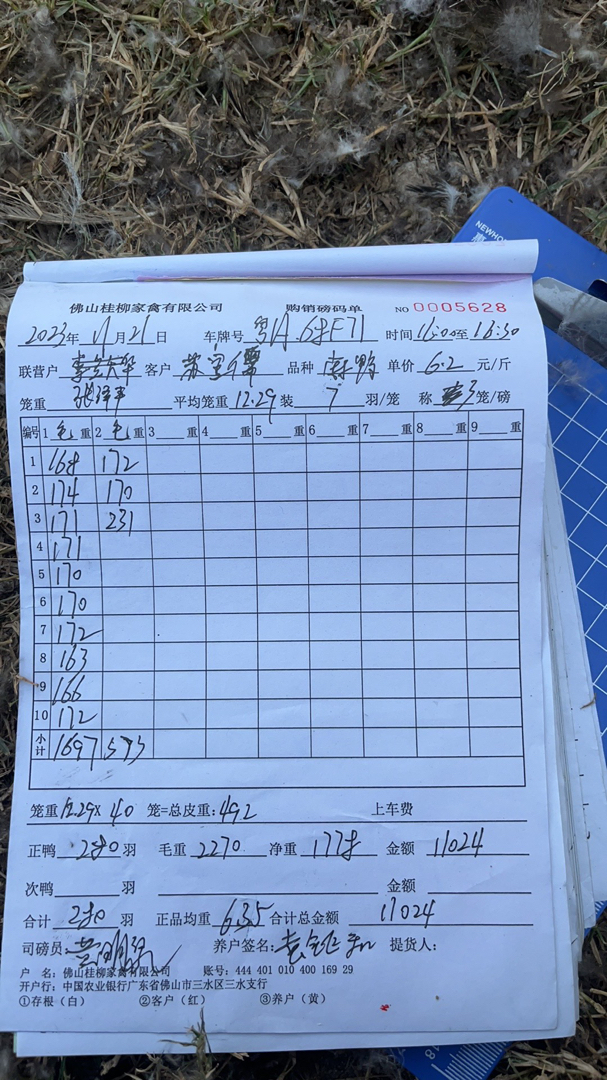 NEWHO
佛山桂柳家禽有限公司 购销磅码单 NO 0005628
2023年 11月21日 车牌号 粤A.68F71 时间 16:00至 16:30
联营户 客户 品种 单价 6.2 元/斤
笼重 平均笼重 12.29 装 7 羽/笼 称 笼/磅
编号 1 毛 重 2 毛 重 3 重 4 重 5 重 6 重 7 重 8 重 9 重
1 168 172
2 174 170
3 171 231
4 171
5 170
6 170
7 172
8 163
9 166
10 172
小计 1697 573
笼重 12.29 × 40 笼=总皮重: 492 上车费
正鸭 280 羽 毛重 2270 净重 1778 金额 11024
次鸭 羽 金额
合计 280 羽 正品均重 6.35 合计总金额 11024
司磅员: 养户签名: 提货人:
户 名: 佛山桂柳家禽有限公司 账号: 444 401 010 400 169 29
开户行: 中国农业银行广东省佛山市三水区三水支行
①存根（白） ②客户（红） ③养户（黄）
18